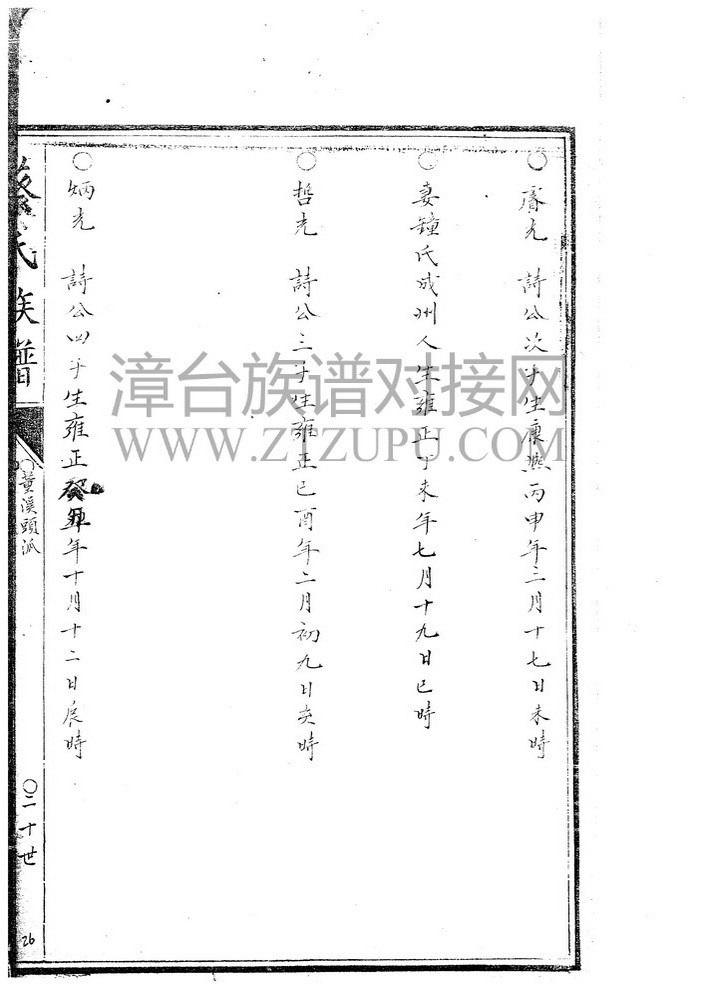 ○ 睿光 詩公次子生康熙丙申年三月十七日未時
○ 妻鍾氏成州人生雍正丁未年七月十九日巳時
○ 哲光 詩公三子生雍正己酉年二月初九日亥時
○ 炳光 詩公四子生雍正癸丑年十月十二日辰時
蔡氏族譜
○董溪頭派
○二十世
26
漳台族谱对接网
WWW.ZTZUPU.COM